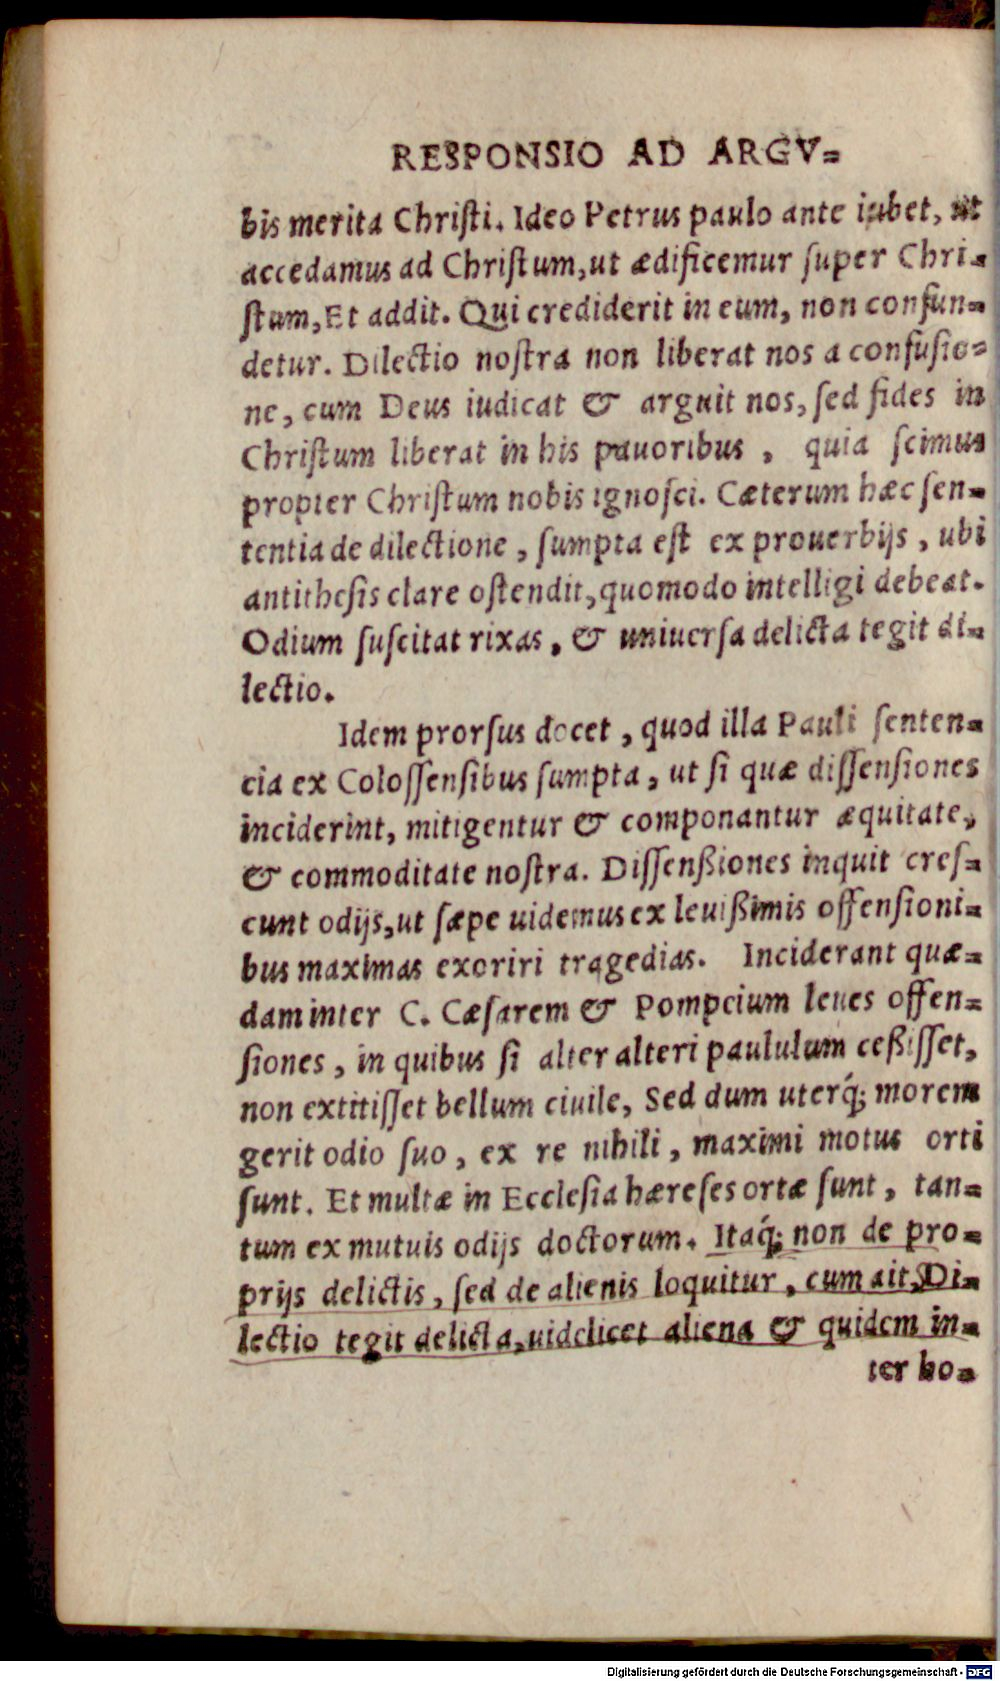 RESPONSIO AD ARGV=
bis merita Chriſti. Ideo Petrus paulo ante iubet, ut
accedamus ad Chriſtum, ut ædificemur ſuper Chri=
ſtum, Et addit. Qui crediderit in eum, non confun=
detur. Dilectio noſtra non liberat nos a confuſio=
ne, cum Deus iudicat & arguit nos, ſed fides in
Chriſtum liberat in his pauoribus, quia ſcimus
propter Chriſtum nobis ignoſci. Cæterum hæc ſen=
tentia de dilectione, ſumpta eſt ex prouerbijs, ubi
antitheſis clare oſtendit, quomodo intelligi debeat.
Odium ſuſcitat rixas, & uniuerſa delicta tegit di=
lectio.
Idem prorſus docet, quod illa Pauli ſenten=
cia ex Coloſſenſibus ſumpta, ut ſi quæ diſſenſiones
inciderint, mitigentur & componantur æquitate,
& commoditate noſtra. Diſſenßiones inquit creſ=
cunt odijs, ut ſæpe uidemus ex leuißimis offenſioni=
bus maximas exoriri tragedias. Inciderant quæ=
dam inter C. Cæſarem & Pompeium leues offen=
ſiones, in quibus ſi alter alteri paululum ceßiſſet,
non extitiſſet bellum ciuile, Sed dum uterq́; morem
gerit odio ſuo, ex re nihili, maximi motus orti
ſunt. Et multæ in Eccleſia hæreſes ortæ ſunt, tan=
tum ex mutuis odijs doctorum. Itaq́; non de pro=
prijs delictis, ſed de alienis loquitur, cum ait, Di=
lectio tegit delicta, uidelicet aliena & quidem in=
ter ho=
Digitalisierung gefördert durch die Deutsche Forschungsgemeinschaft - DFG